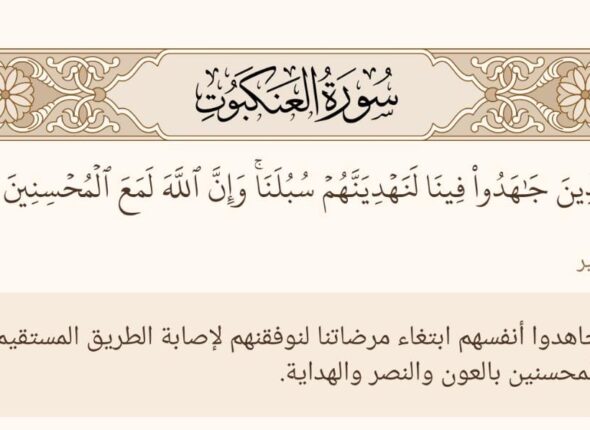 سُورَةُ العَنكَبُوتِ
جَٰهَدُوا۟ فِينَا لَنَهۡدِيَنَّهُمۡ سُبُلَنَاۚ وَإِنَّ ٱللَّهَ لَمَعَ ٱلۡمُحۡسِنِينَ
أنفسهم ابتغاء مرضاتنا لنوفقنهم لإصابة الطريق المستقيم
بالعون والنصر والهداية.